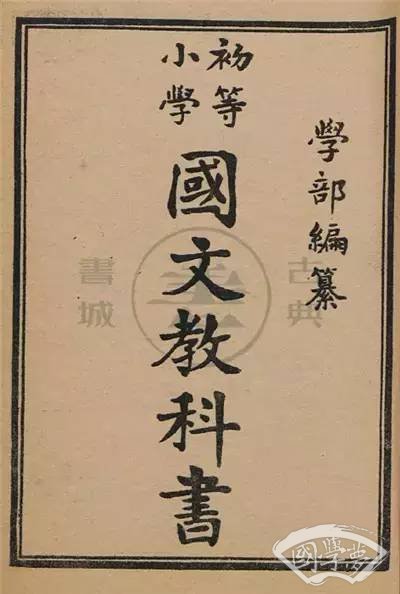 學部編纂
初等
小學
國文教科書
古典
書城
國學夢